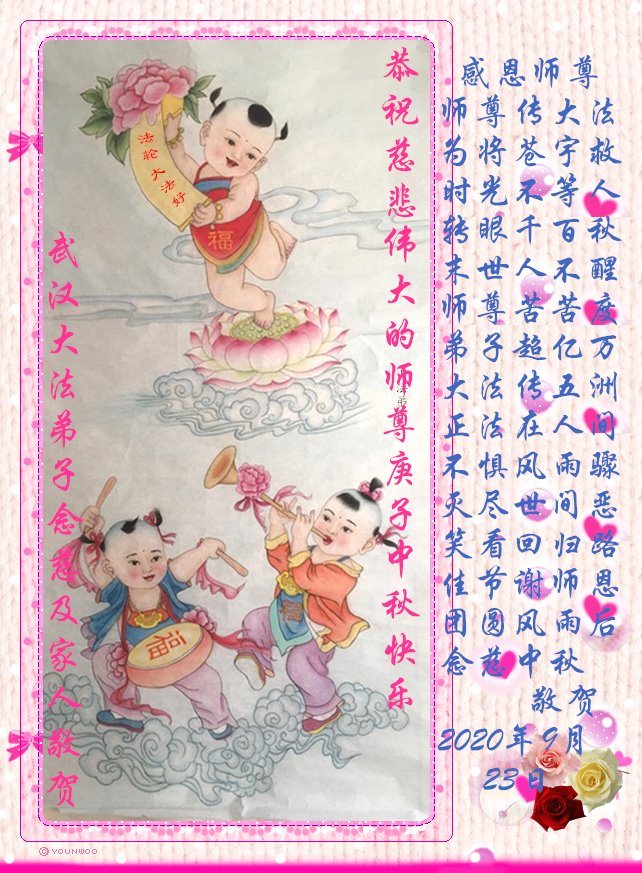 恭祝慈悲伟大的师尊庚子中秋快乐
法轮大法好
福
福
武汉大法弟子念慈及家人敬贺
感恩师尊
师尊传大法
为将苍宇救
时光不等人
转眼千百秋
末世人不醒
师尊苦苦度
弟子超亿万
大法传五洲
正法在人间
不惧风雨骤
灭尽世间恶
笑看回归路
佳节谢师恩
团圆风雨后
念慈中秋
敬贺
2020年9月
23日
© YOUNWOO